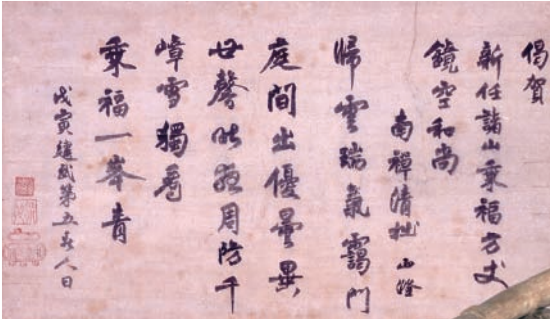 偈賀
新任諸山乘福方丈
鏡空和尚
南禪清拙 正澄
歸雲瑞氣靄門
庭間出優曇異
世馨昨夜周防千
嶂雪獨看
乘福一峯青
戊寅建武第五春人日